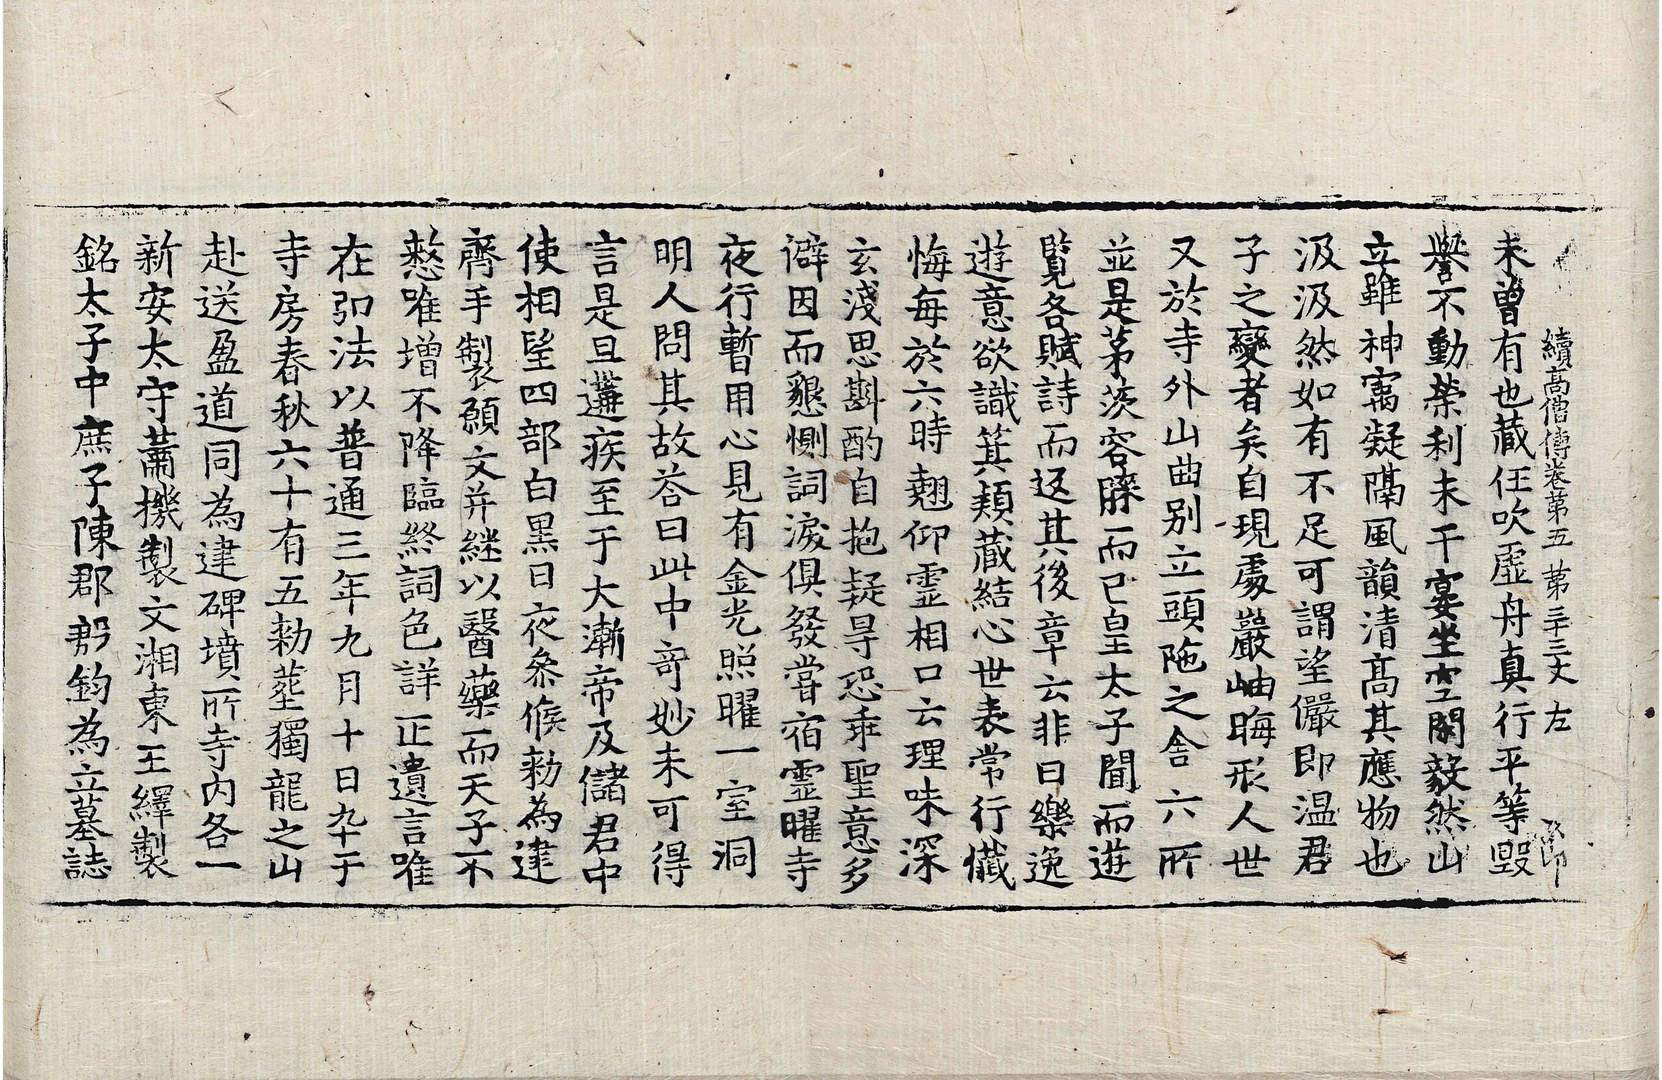 續高僧傳卷第五 第三十三丈 左
未曾有也藏任吹虛舟真行平等毀
譽不動榮利未干宴坐空閑毅然山
立雖神㝢凝隔風韻清高其應物也
汲汲然如有不足可謂望儼即温君
子之變者矣自現處巖岫晦形人世
又於寺外山曲别立頭陁之舍六所
並是茅茨容膝而已皇太子聞而遊
覽各賦詩而返其後章云非曰樂逸
遊意欲識箕頴藏結心世表常行懺
悔每於六時翹仰靈相口云理味深
玄淺思斟酌自抱疑㝵恐乖聖意多
僻因而懇惻詞淚俱發嘗宿靈曜寺
夜行暫用心見有金光照曜一室洞
明人問其故荅曰此中奇妙未可得
言是旦遘疾至于大漸帝及儲君中
使相望四部白黑日夜叅候勑為建
齊手製願文并繼以醫藥而天子不
憗唯增不降臨終詞色詳正遺言唯
在弘法以普通三年九月十日卒于
寺房春秋六十有五勑葬獨龍之山
赴送盈道同為建碑墳所寺内各一
新安太守蕭機製文湘東王繹製
銘太子中庶子陳郡郣鈞為立墓誌